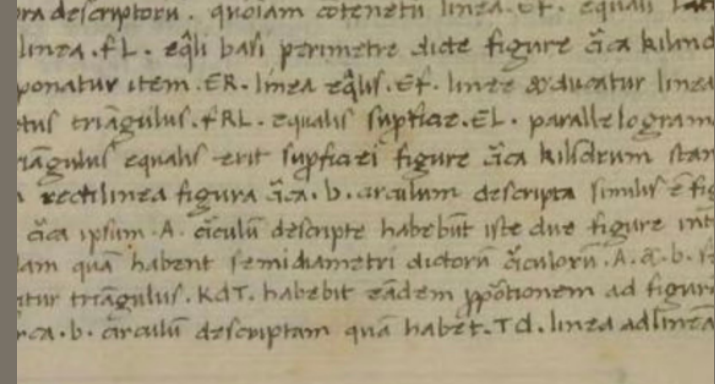 ra descriptoru. quoiam cōtenetu linea. Ef. equali
linea. fL. eq̄li basi perimetre dicte figure c̄ica kilind
ponatur item. ER. linea eq̄lis. Ef. linee & ducatur linea
etus triāgulus. fRL. equalis sup̄ficiei. EL. parallelogram
riāgulus equalis erit sup̄ficiei figure c̄ica kilīdrum stan
rectilinea figura c̄ica. b. circulum descripta similis ē fig
c̄ica ipsum. A. c̄iculū descripte habebūt iste due figure int
lam quā habent semidiametri dictorū c̄iculorū. A. &. b.
itur triāgulus. KdT. habebit eādem ꝓpōtionem ad figurā
rca. b. circulū descriptam quā habet. Td. linea ad lineā